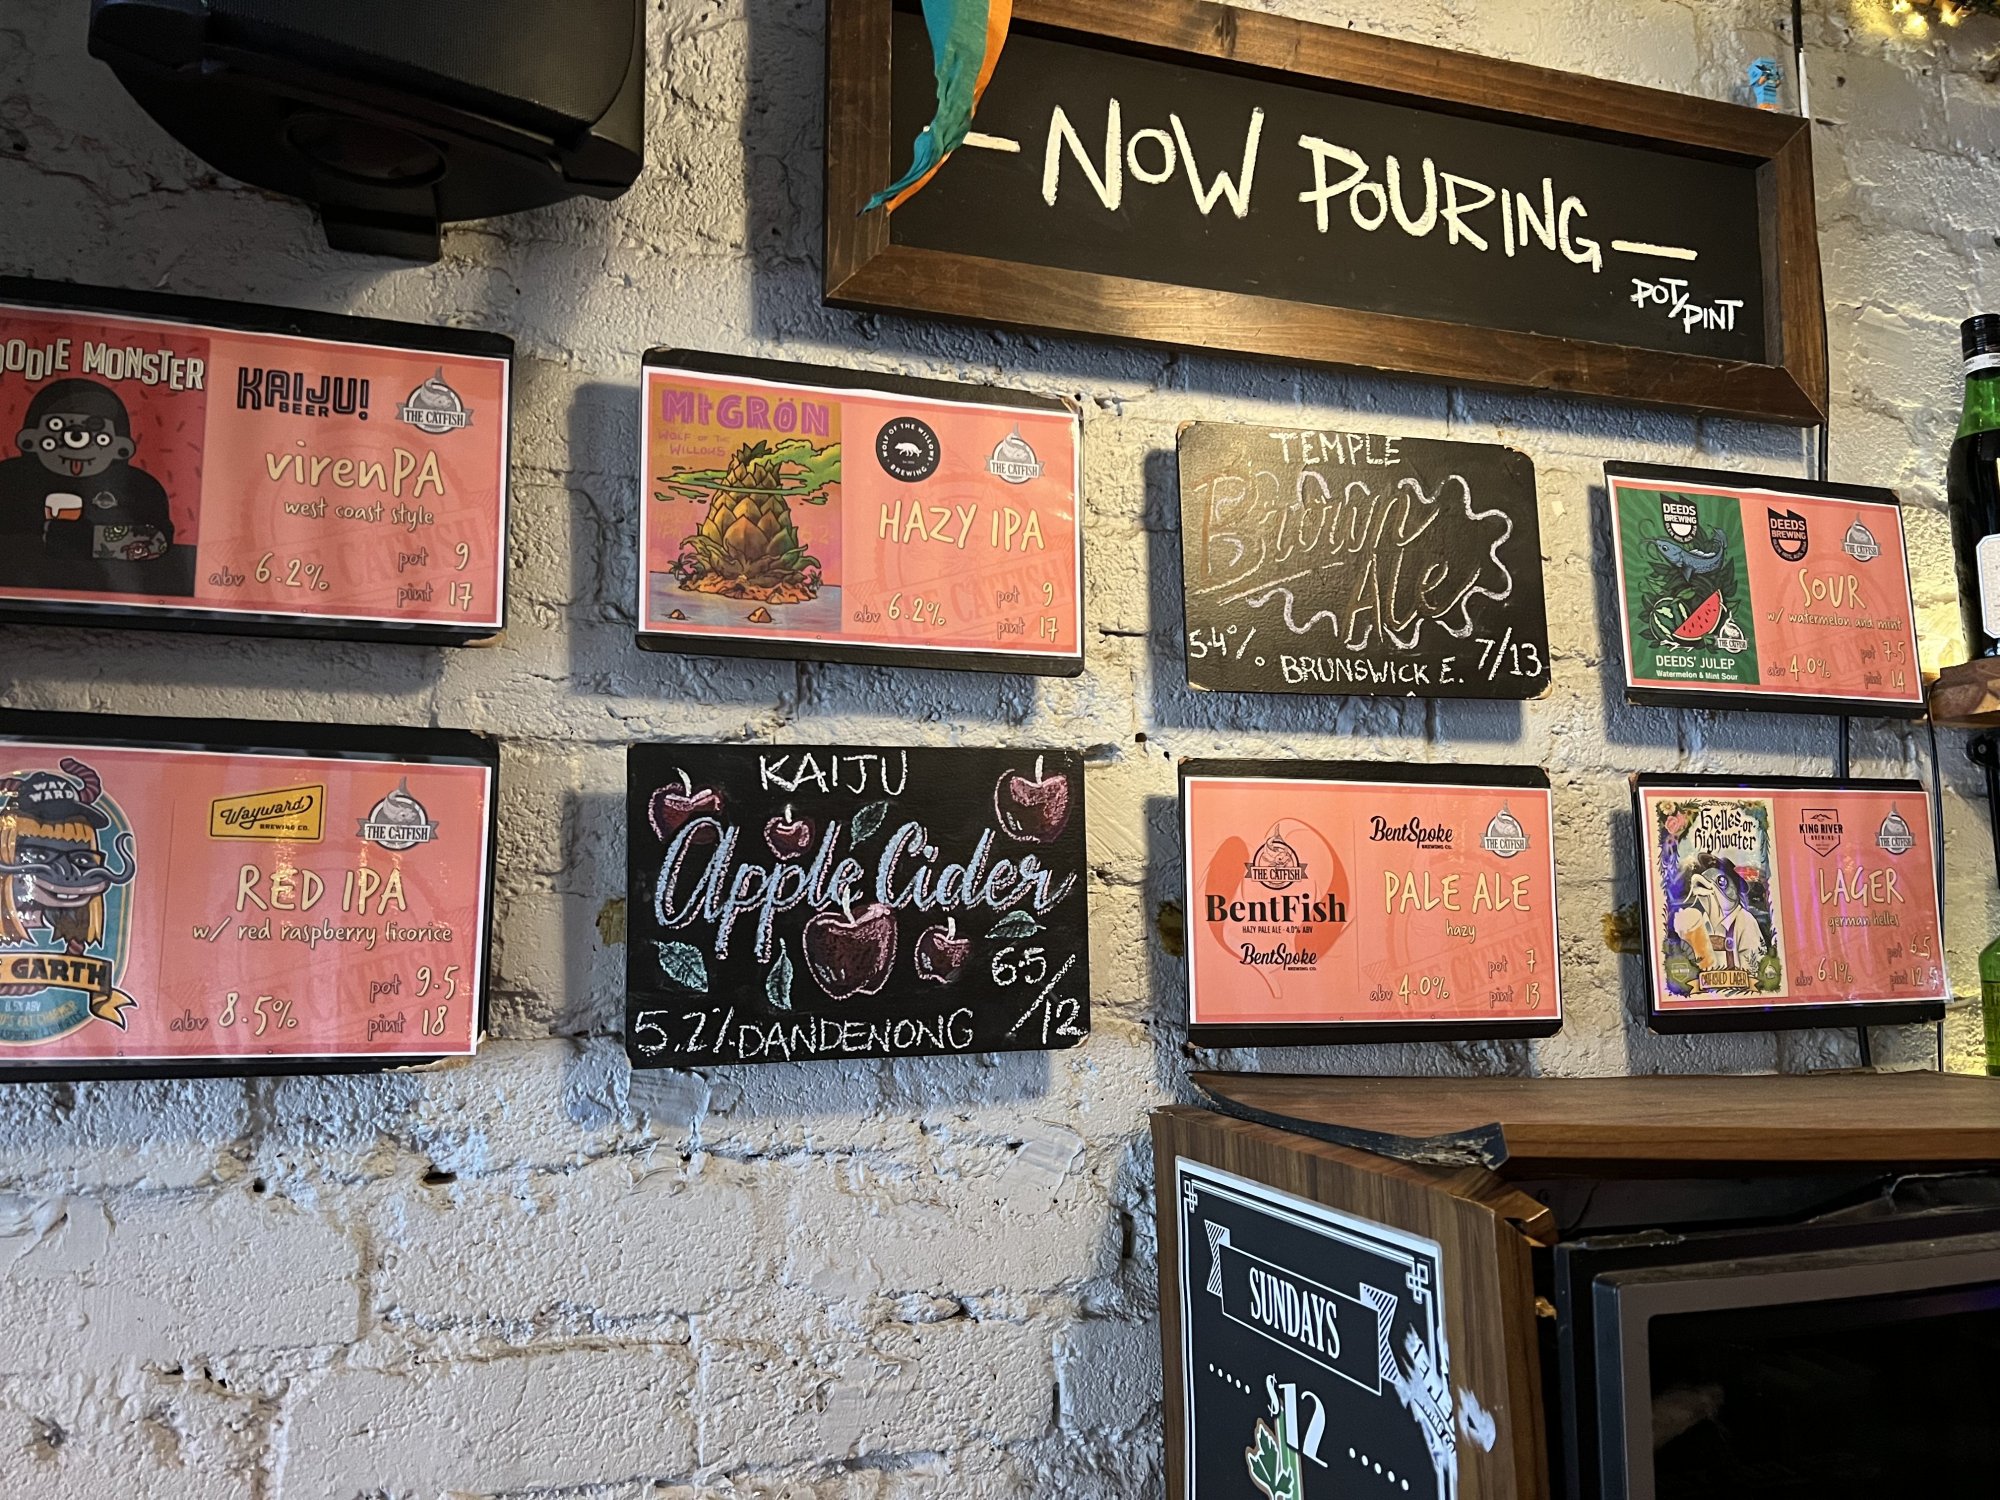 — NOW POURING —
POT/PINT
OODIE MONSTER
KAIJU!
BEER
THE CATFISH
virenPA
west coast style
abv 6.2%
pot 9
pint 17
Mt GRÖN
WOLF OF THE
WILLOWS
WOLF OF THE WILLOWS
BREWING
THE CATFISH
HAZY IPA
abv 6.2%
pot 9
pint 17
TEMPLE
Brown
Ale
5.4%
BRUNSWICK E.
7/13
DEEDS
BREWING
DEEDS' JULEP
Watermelon & Mint Sour
DEEDS
BREWING
THE CATFISH
SOUR
w/ watermelon and mint
abv 4.0%
pot 7.5
pint 14
WAY
WARD
GARTH
8.5% ABV
Wayward
BREWING CO.
THE CATFISH
RED IPA
w/ red raspberry licorice
abv 8.5%
pot 9.5
pint 18
KAIJU
Apple Cider
6.5/12
5.2% DANDENONG
THE CATFISH
BentFish
HAZY PALE ALE · 4.0% ABV
BentSpoke
BREWING CO.
BentSpoke
BREWING CO.
THE CATFISH
PALE ALE
hazy
abv 4.0%
pot 7
pint 13
helles-or-
highwater
CATFISH LAGER
KING RIVER
BREWING
THE CATFISH
LAGER
german helles
abv 6.1%
pot 6.5
pint 12.5
SUNDAYS
$12